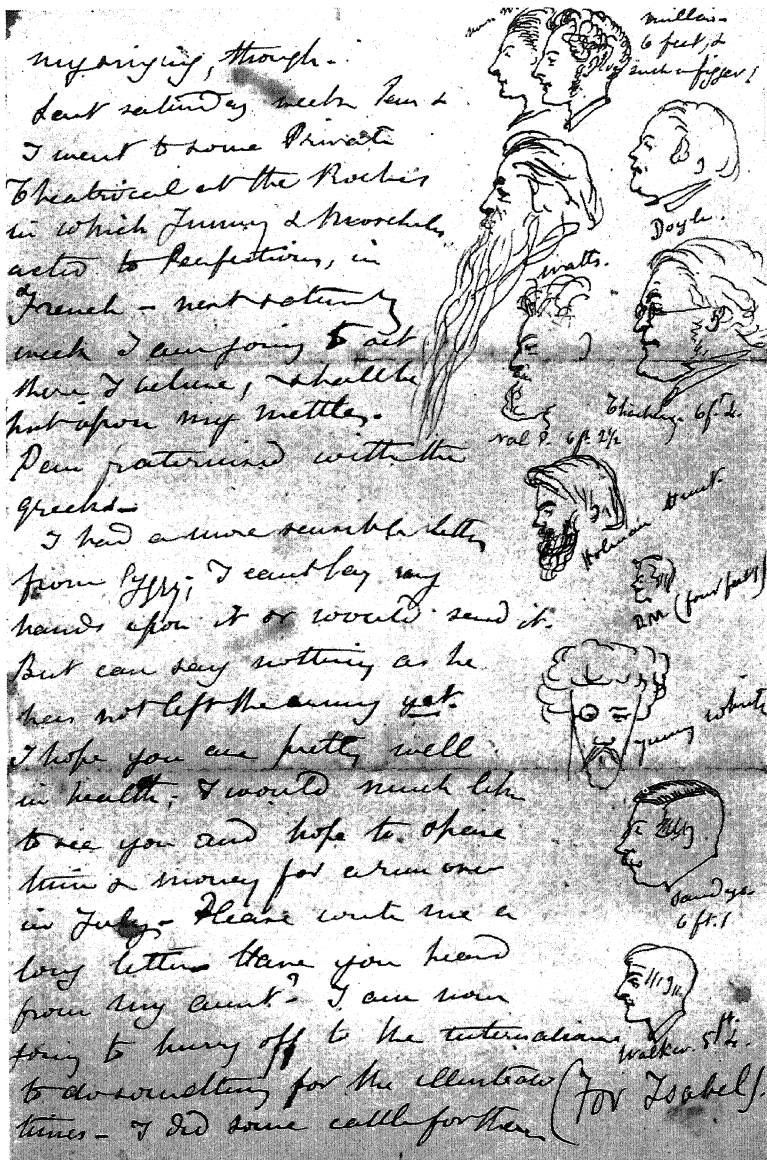 my singing, though -
Last saturday week Pem &
I went to some Private
Theatrical at the Roches
in which Jimmy & Moscheles
acted to Perfection, in
French - next saturday
week I am going to act
there I believe, & shall be
put upon my mettle.
Pem fraternised with the
greeks -
I had a more sensible letter
from Gyggy; I cant lay my
hands upon it or would send it.
But can say nothing as he
has not left the army yet.
I hope you are pretty well
in health; I would much like
to see you and hope to spare
time & money for a run over
in July - Please write me a
long letter. Have you heard
from my aunt? I am now
going to hurry off to the international
to do something for the illustrated
times - I did some cattle for them
(For Isabel).
millais -
6 feet, &
such a figger!
Doyle.
Watts.
Thackeray. 6 ft. 4.
Val P. 6 ft 2½
Holman Hunt.
DM (four feet)
jimmy whistler
Sandys
6 ft. 1
Walker. 5 ft. 4.